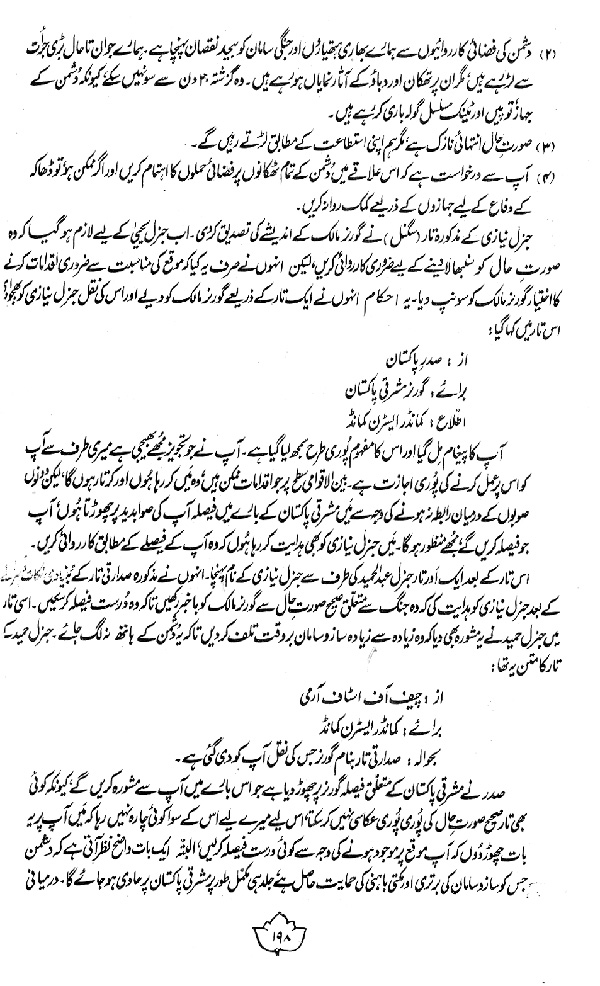 (۲) دشمن کی فضائی کارروائیوں سے ہمارے بھاری ہتھیاروں اور جنگی سامان کو بیحد نقصان پہنچا ہے۔ ہمارے جوان تاحال بڑی جرأت
سے لڑ رہے ہیں، مگر ان پر تھکان اور دباؤ کے آثار نمایاں ہو رہے ہیں۔ وہ گزشتہ ۲۰ دن سے سو نہیں سکے، کیونکہ دشمن کے
جہاز، توپیں اور ٹینک مسلسل گولہ باری کر رہے ہیں۔
(۳) صورتِ حال انتہائی نازک ہے، مگر ہم اپنی استطاعت کے مطابق لڑتے رہیں گے۔
(۴) آپ سے درخواست ہے کہ اس علاقے میں دشمن کے تمام ٹھکانوں پر فضائی حملوں کا اہتمام کریں اور اگر ممکن ہو تو ڈھاکہ
کے دفاع کے لیے جہازوں کے ذریعے کمک روانہ کریں۔
جنرل نیازی کے مذکورہ تار (سگنل) نے گورنر مالک کے اندیشے کی تصدیق کر دی۔ اب جنرل یحییٰ کے لیے لازم ہو گیا کہ وہ
صورتِ حال کو سنبھالا دینے کے لیے ضروری کارروائی کریں، لیکن انہوں نے صرف یہ کیا کہ موقع کی مناسبت سے ضروری اقدامات کرنے
کا اختیار گورنر مالک کو سونپ دیا۔ یہ احکام انہوں نے ایک تار کے ذریعے گورنر مالک کو دیے اور اس کی نقل جنرل نیازی کو بھجوا دی
اس تار میں کہا گیا:
از : صدر پاکستان
برائے : گورنر مشرقی پاکستان
اطلاع : کمانڈر ایسٹرن کمانڈ
آپ کا پیغام مل گیا اور اس کا مفہوم پوری طرح سمجھ لیا گیا ہے۔ آپ نے جو تجویز مجھے بھیجی ہے میری طرف سے آپ
کو اس پر عمل کرنے کی پوری اجازت ہے۔ بین الاقوامی سطح پر جو اقدامات ممکن ہیں، وہ میں کر رہا ہوں اور کرتا رہوں گا، لیکن دونوں
صوبوں کے درمیان رابطہ نہ ہونے کی وجہ سے میں مشرقی پاکستان کے بارے میں فیصلہ آپ کی صوابدید پر چھوڑتا ہوں، آپ
جو فیصلہ کریں گے، مجھے منظور ہو گا۔ میں جنرل نیازی کو بھی ہدایت کر رہا ہوں کہ وہ آپ کے فیصلے کے مطابق کارروائی کریں۔
اس تار کے بعد ایک اور تار جنرل عبدالحمید کی طرف سے جنرل نیازی کے نام پہنچا۔ انہوں نے مذکورہ صدارتی تار کے بنیادی نکات
کے بعد جنرل نیازی کو ہدایت کی کہ وہ جنگ سے متعلق صحیح صورتِ حال سے گورنر مالک کو باخبر رکھیں تاکہ وہ درست فیصلہ کر سکیں۔ اسی تار
میں جنرل حمید نے یہ مشورہ بھی دیا کہ وہ زیادہ سے زیادہ ساز و سامان بر وقت تلف کر دیں تاکہ یہ دشمن کے ہاتھ نہ لگ جائے۔ جنرل حمید کے
تار کا متن یہ تھا:
از : چیف آف اسٹاف آرمی
برائے : کمانڈر ایسٹرن کمانڈ
بحوالہ : صدارتی تار بنام گورنر جس کی نقل آپ کو دی گئی ہے۔
صدر نے مشرقی پاکستان کے متعلق فیصلہ گورنر پر چھوڑ دیا ہے جو اس بارے میں آپ سے مشورہ کریں گے، کیونکہ کوئی
بھی تار صحیح صورتِ حال کی پوری پوری عکاسی نہیں کر سکتا، اس لیے میرے لیے اس کے سوا کوئی چارہ نہیں رہا کہ میں آپ پر یہ
بات چھوڑ دوں کہ آپ موقع پر موجود ہونے کی وجہ سے کوئی درست فیصلہ کر لیں، البتہ ایک بات واضح نظر آتی ہے کہ دشمن
جس کو ساز و سامان کی برتری اور مکتی باہنی کی حمایت حاصل ہے، جلد ہی مکمل طور پر مشرقی پاکستان پر حاوی ہو جائے گا۔ درمیانی
۱۹۸